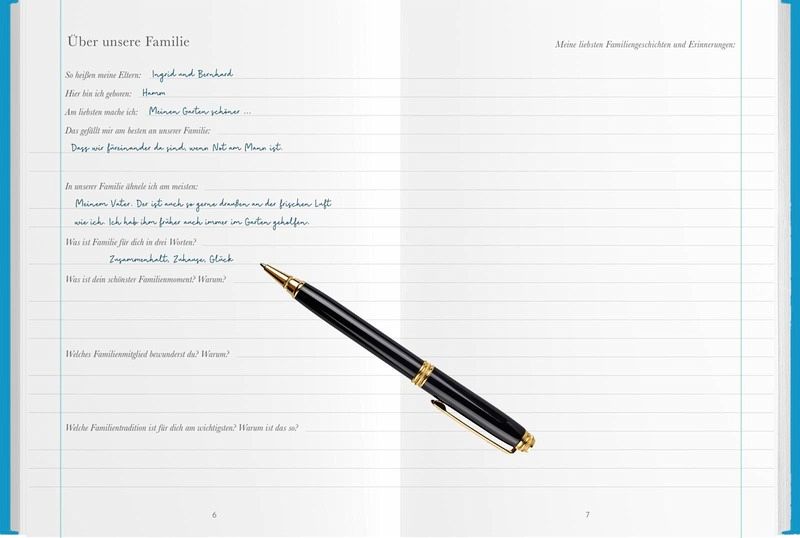 Über unsere Familie
So heißen meine Eltern: Ingrid und Bernhard
Hier bin ich geboren: Hamm
Am liebsten mache ich: Meinen Garten schöner ...
Das gefällt mir am besten an unserer Familie:
Dass wir füreinander da sind, wenn Not am Mann ist.
In unserer Familie ähnele ich am meisten:
Meinem Vater. Der ist auch so gerne draußen an der frischen Luft
wie ich. Ich hab ihm früher auch immer im Garten geholfen.
Was ist Familie für dich in drei Worten?
Zusammenhalt, Zuhause, Glück
Was ist dein schönster Familienmoment? Warum?
Welches Familienmitglied bewunderst du? Warum?
Welche Familientradition ist für dich am wichtigsten? Warum ist das so?
6
Meine liebsten Familiengeschichten und Erinnerungen:
7